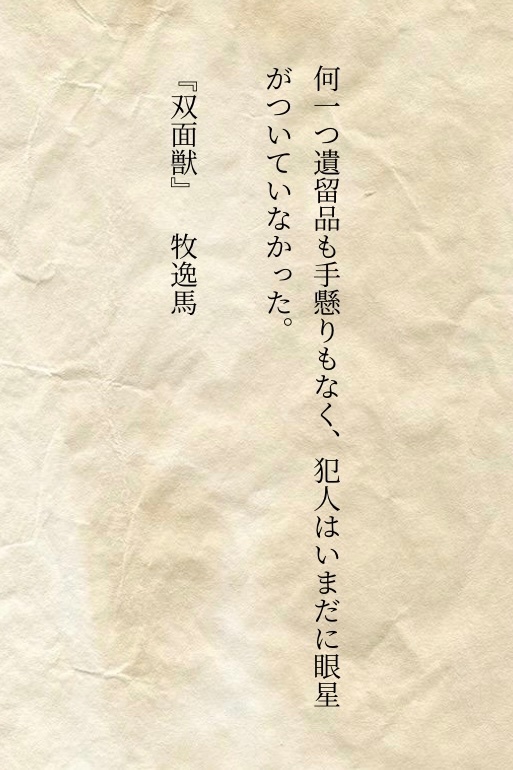 何一つ遺留品も手懸りもなく、犯人はいまだに眼星
がついていなかった。
『双面獣』　牧逸馬